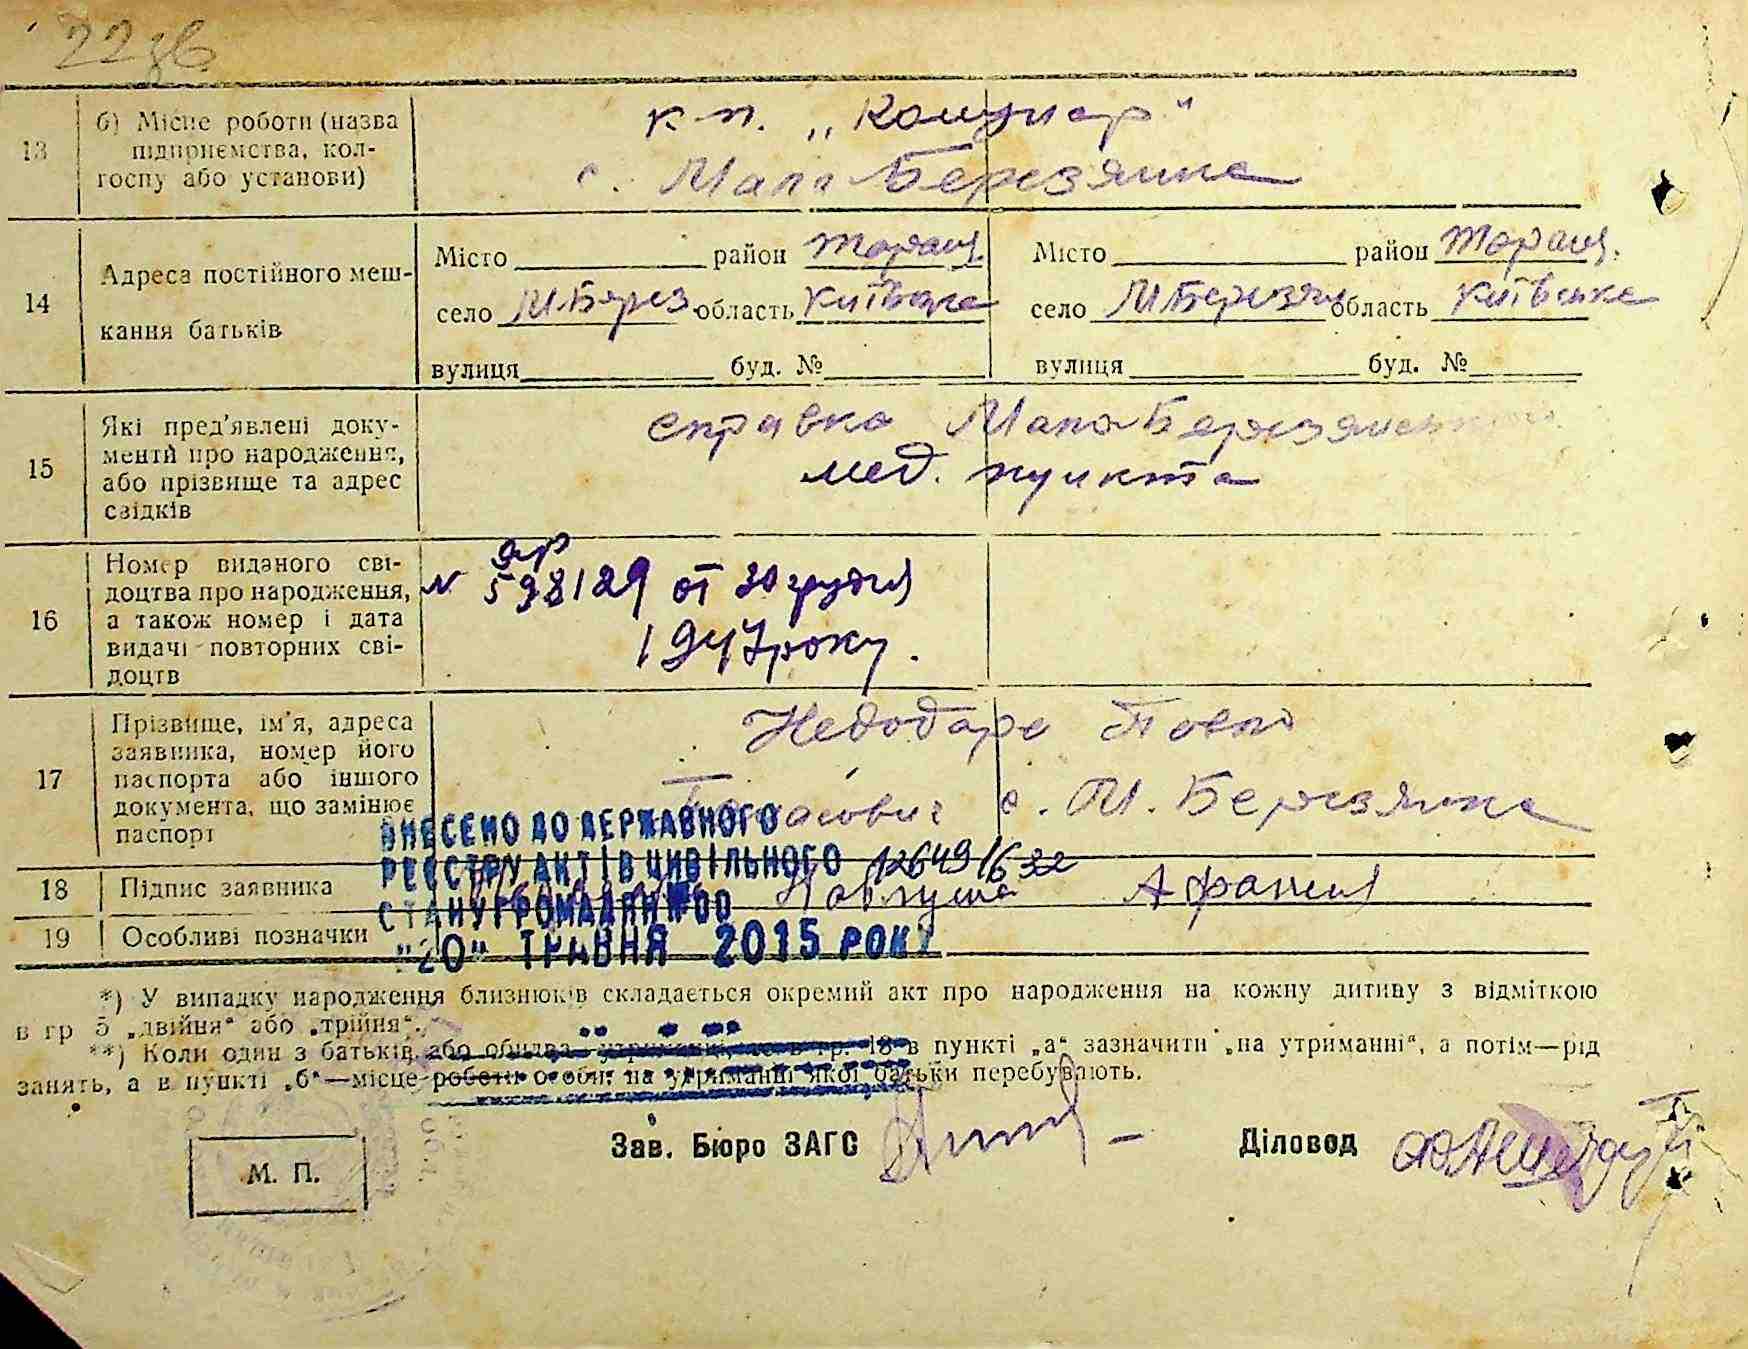 22зв
13 б) Місце роботи (назва
підприємства, кол-
госпу або установи)
к п. „Комунар"
с. Мала Березянка
14 Адреса постійного меш-
кання батьків
Місто район Таращ. Місто район Таращ.
село М.Берез область Київська село М Березян область Київська
вулиця буд. № вулиця буд. №
15 Які пред'явлені доку-
менти про народження,
або прізвище та адрес
свідків
справка Мало Березянського
мед. пункта
16 Номер виданого сві-
доцтва про народження,
а також номер і дата
видачі повторних сві-
доцтв
яр
N 598129 от 30 грудня
1947 року.
17 Прізвище, ім'я, адреса
заявника, номер його
паспорта або іншого
документа, що замінює
паспорт
Недодара
с. М. Березянка
ВНЕСЕНО ДО ДЕРЖАВНОГО
РЕЄСТРУ АКТІВ ЦИВІЛЬНОГО 12649
СТАНУ ГРОМАДЯН №00
"20" ТРАВНЯ 2015 РОКУ
18 Підпис заявника
19 Особливі позначки
*) У випадку народження близнюків складається окремий акт про народження на кожну дитину з відміткою
в гр 5 „двійня" або „трійня".
**) Коли один з батьків або обидва утриманці, то в гр. 13 в пункті „а" зазначити „на утриманні", а потім—рід
занять, а в пункті „б"—місце роботи особи, на утриманні якої батьки перебувають.
Зав. Бюро ЗАГС Діловод
М. П.